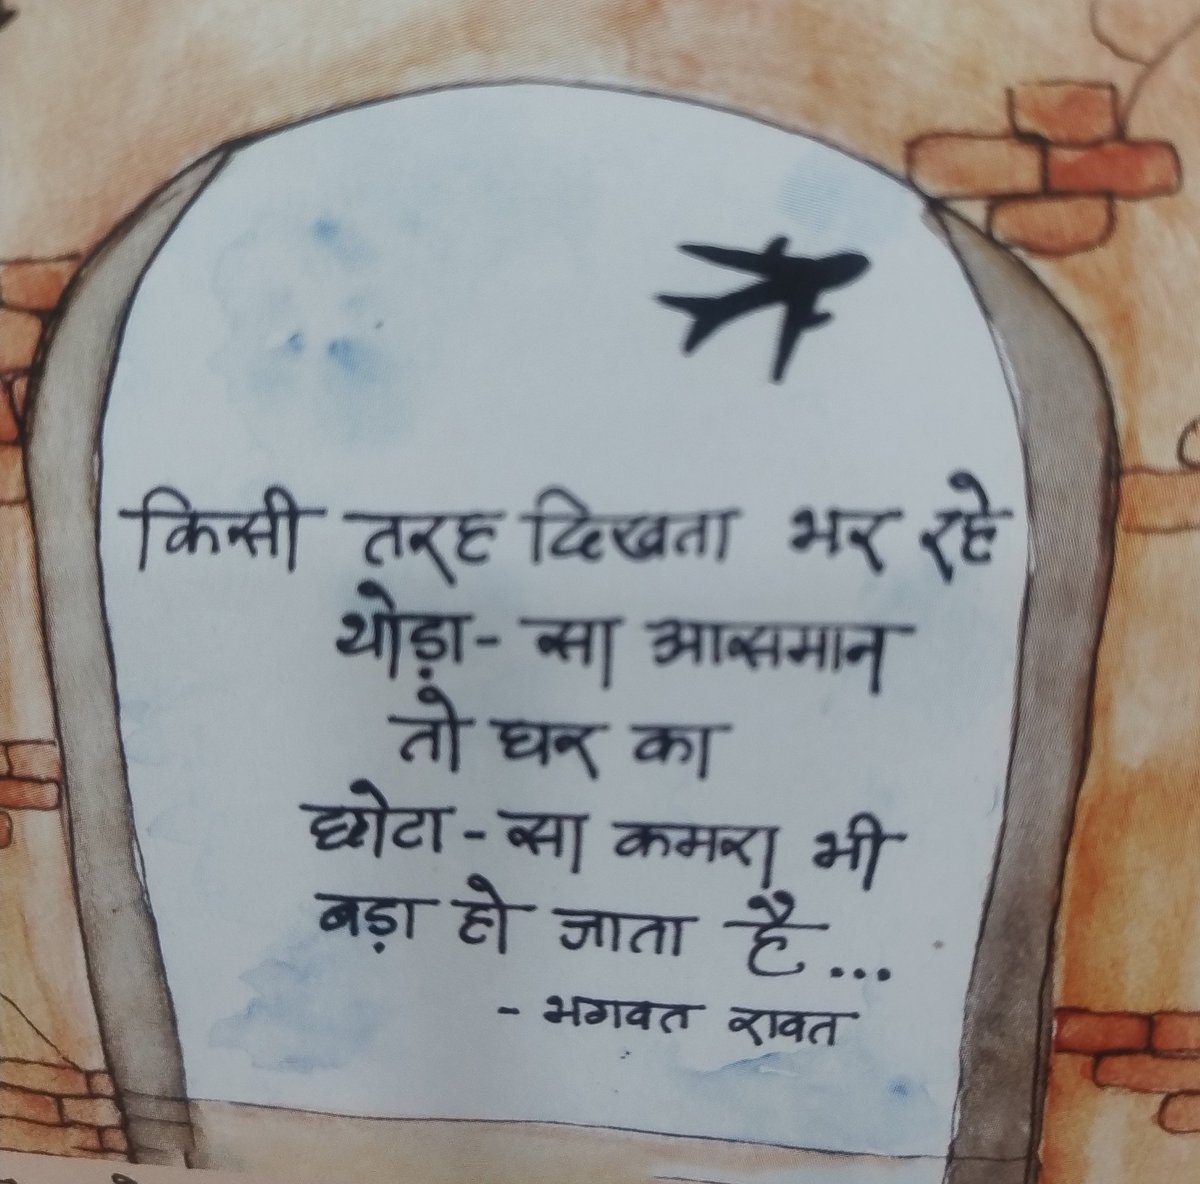 किसी तरह दिखता भर रहे
थोड़ा-सा आसमान
तो घर का
छोटा-सा कमरा भी
बड़ा हो जाता है...
- भगवत रावत